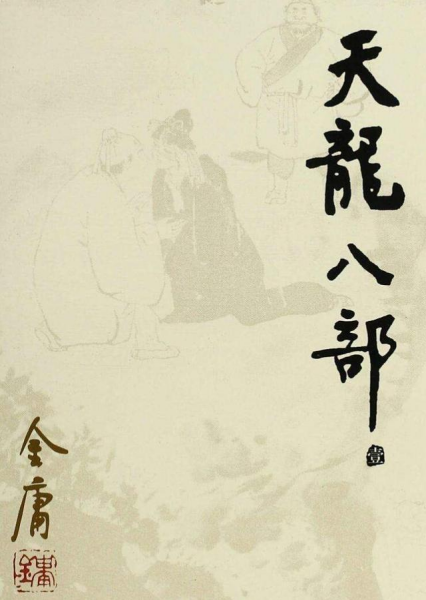 天龍八部
壹
金庸
金庸